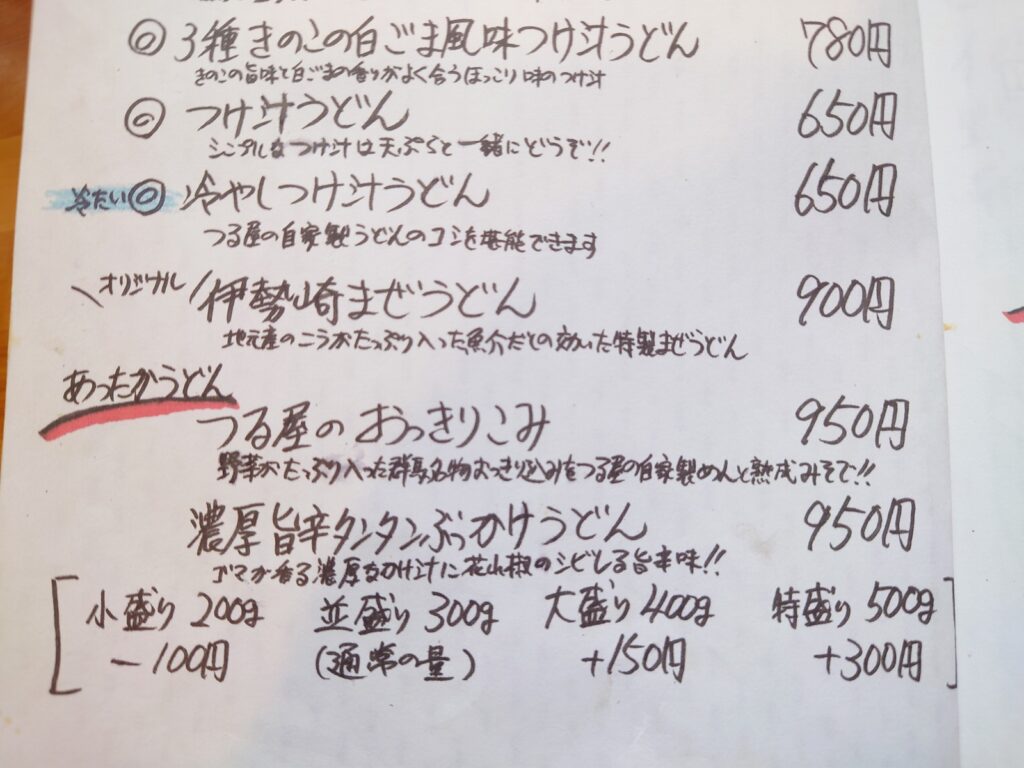 ◎ 3種きのこの白ごま風味つけ汁うどん 780円
きのこの旨味と白ごまの香りがよく合うほっこり味のつけ汁
◎ つけ汁うどん 650円
シンプルなつけ汁は天ぷらと一緒にどうぞ!!
冷たい ◎ 冷やしつけ汁うどん 650円
つる屋の自家製うどんのコシを堪能できます
\オリジナル/ 伊勢崎まぜうどん 900円
地元産のニラがたっぷり入った魚介だしの効いた特製まぜうどん
あったかうどん
つる屋のおっきりこみ 950円
野菜がたっぷり入った群馬名物おっきり込みをつる屋の自家製めんと熟成みそで!!
濃厚旨辛タンタンぶっかけうどん 950円
ゴマが香る濃厚なつけ汁に花山椒のシビレる旨辛味!!
小盛り 200g 並盛り 300g 大盛り 400g 特盛り 500g
-100円 (通常の量) +150円 +300円